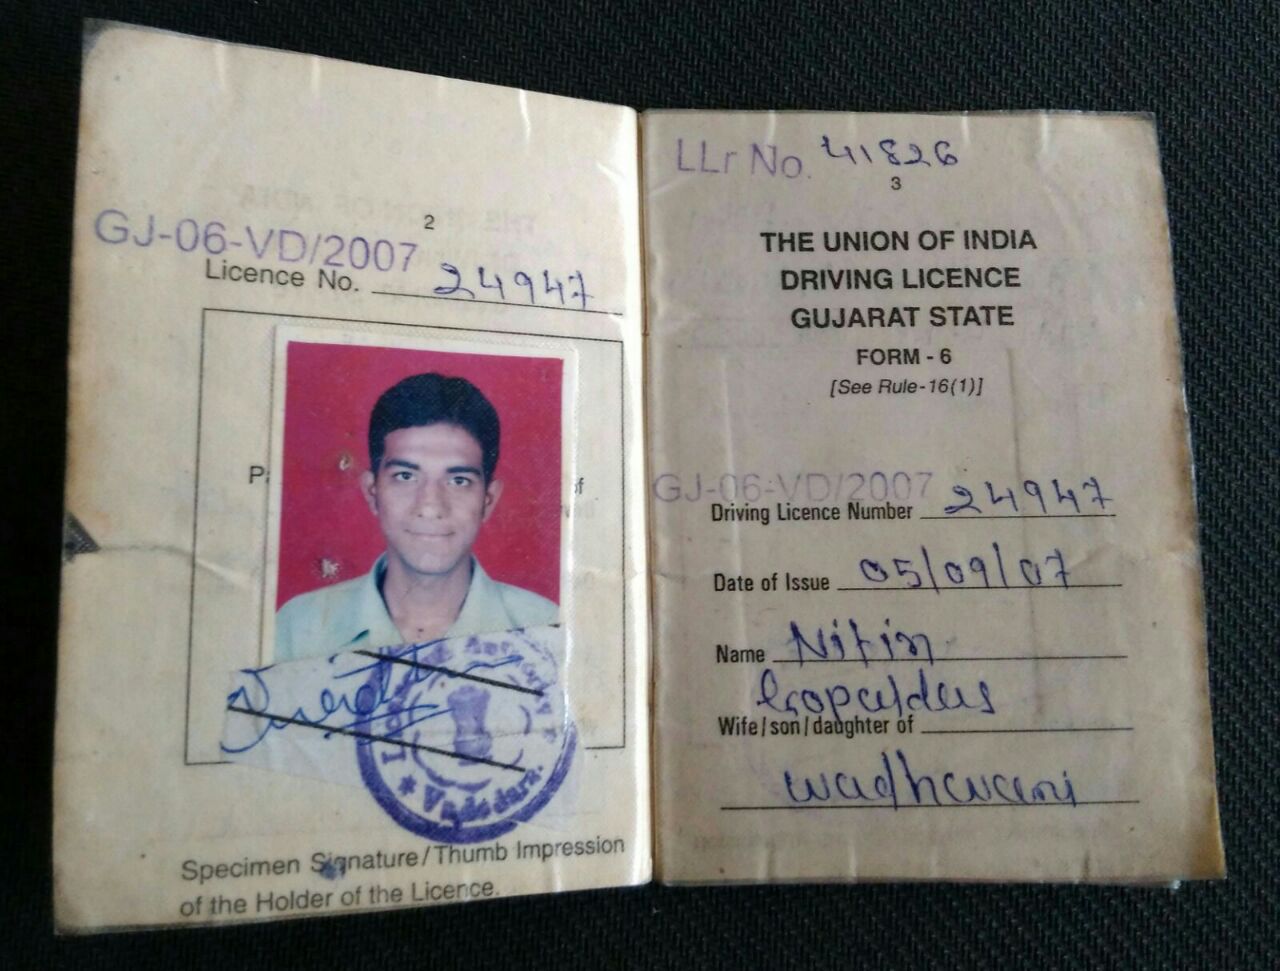 2
GJ-06-VD/2007
Licence No. 24947
Vadodara.
Specimen Signature/Thumb Impression
of the Holder of the Licence.
LLr No. 41826
3
THE UNION OF INDIA
DRIVING LICENCE
GUJARAT STATE
FORM - 6
[See Rule-16(1)]
GJ-06-VD/2007
Driving Licence Number 24947
Date of Issue 05/09/07
Name Nitin
Gopaldas
Wife/son/daughter of
wadhawani